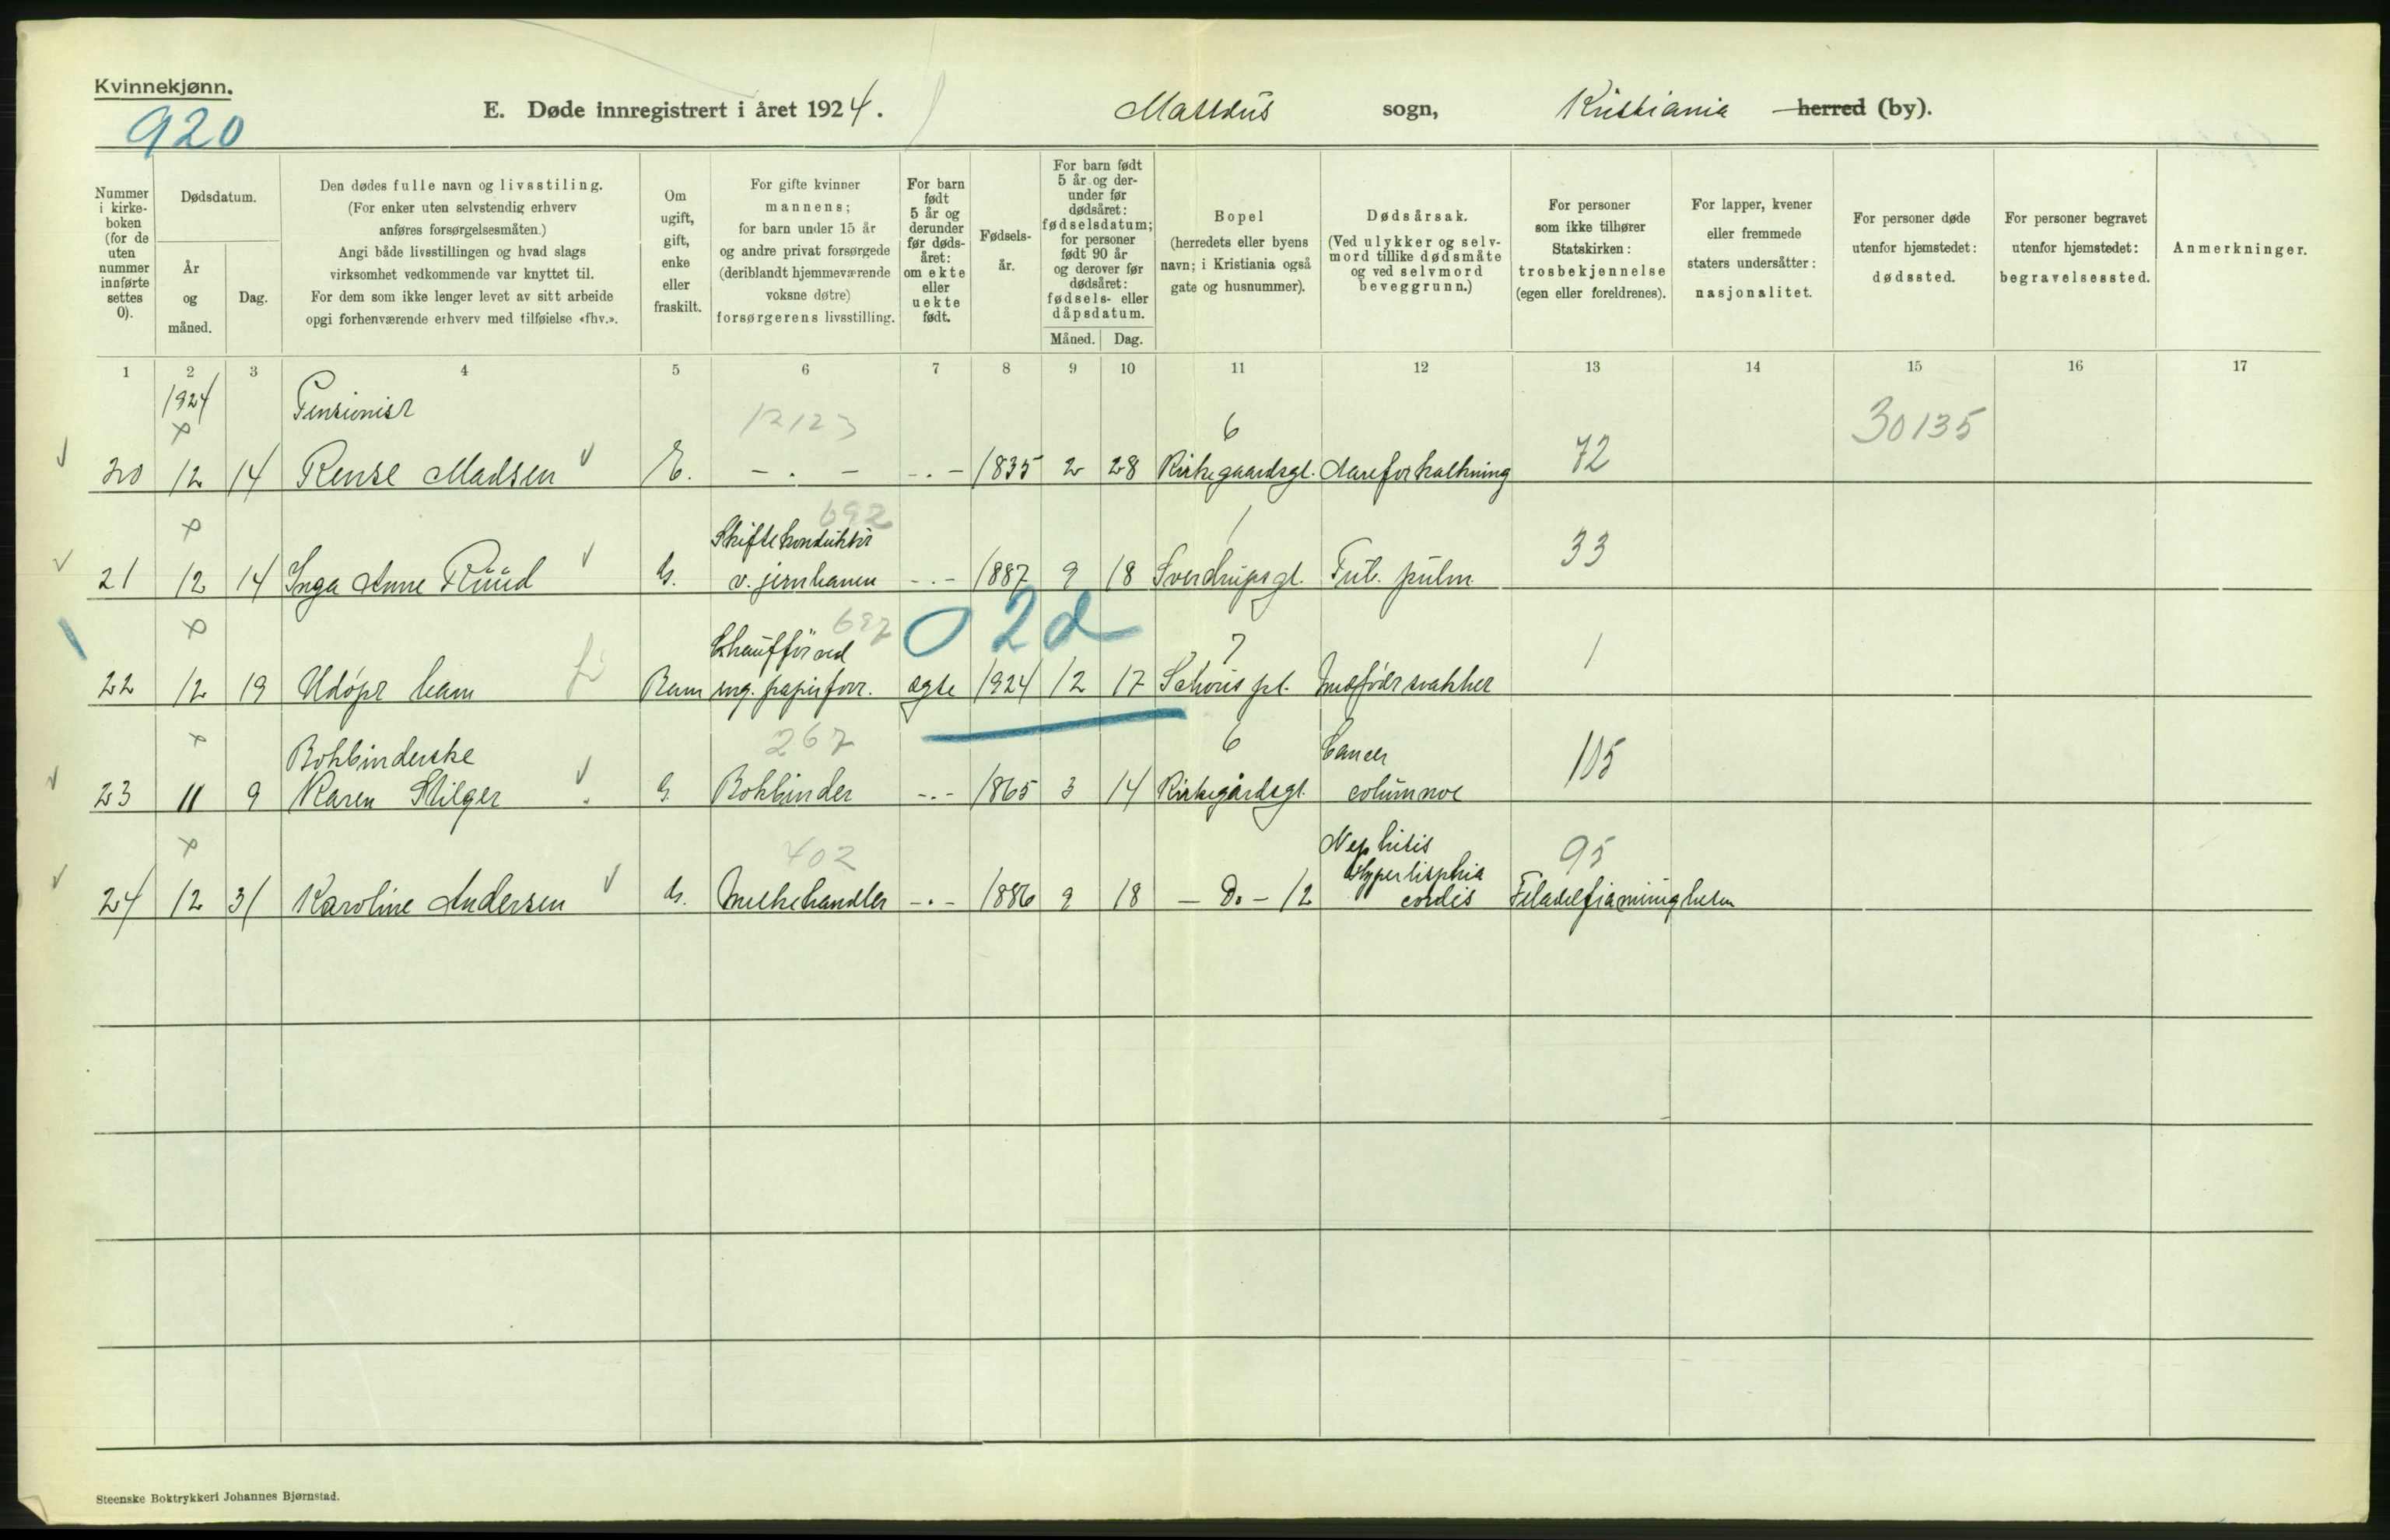 Kvinnekjønn.
920
E. Døde innregistrert i året 1924. Mattéus sogn, Kristiania herred (by).
Nummer i kirkeboken (for de uten nummer innførte settes 0).
Dødsdatum.
År og måned.
Dag.
Den dødes fulle navn og livsstiling.
(For enker uten selvstendig erhverv
anføres forsørgelsesmåten.)
Angi både livsstillingen og hvad slags
virksomhet vedkommende var knyttet til.
For dem som ikke lenger levet av sitt arbeide
opgi forhenværende erhverv med tilføielse «fhv.».
Om
ugift,
gift,
enke
eller
fraskilt.
For gifte kvinner
mannens;
for barn under 15 år
og andre privat forsørgede
(deriblandt hjemmeværende
voksne døtre)
forsørgerens livsstilling.
For barn
født
5 år og
derunder
før døds-
året:
om ekte
eller
uekte
født.
Fødsels-
år.
For barn født
5 år og der-
under før
dødsåret:
fødselsdatum;
for personer
født 90 år
og derover før
dødsåret:
fødsels- eller
dåpsdatum.
Måned. Dag.
Bopel
(herredets eller byens
navn; i Kristiania også
gate og husnummer).
Dødsårsak.
(Ved ulykker og selv-
mord tillike dødsmåte
og ved selvmord
beveggrunn.)
For personer
som ikke tilhører
Statskirken:
trosbekjennelse
(egen eller foreldrenes).
For lapper, kvener
eller fremmede
staters undersåtter:
nasjonalitet.
For personer døde
utenfor hjemstedet:
dødssted.
For personer begravet
utenfor hjemstedet:
begravelsessted.
Anmerkninger.
1 2 3 4 5 6 7 8 9 10 11 12 13 14 15 16 17
1924 Pensionist 12123 6 30135
20 12 14 Rense Madsen E. - . - - . - 1835 2 28 Kirkegaardsgt. Aareforkalkning 72
692
Skiftekonduktör 1 33
21 12 14 Inga Anne Ruud G. v. jernbanen - . - 1887 9 18 Sverdrupsgt. Tub. pulm.
697 02d
Chaufför ved 7 1
22 12 19 Udøpt barn Barn eng. papirforr. ægte 1924 12 17 Schous pl. Medfödt svakhet
Bokbinderske 267 6 Cancer 105
23 11 9 Karen Stilger G. Bokbinder - . - 1865 3 14 Kirkegårdsgt. columnoe
402 95
24 12 31 Karoline Andersen G. Melkehandler - . - 1886 9 18 - Do - 12 cordis Filadelfiamenigheten
Steenske Boktrykkeri Johannes Bjørnstad.